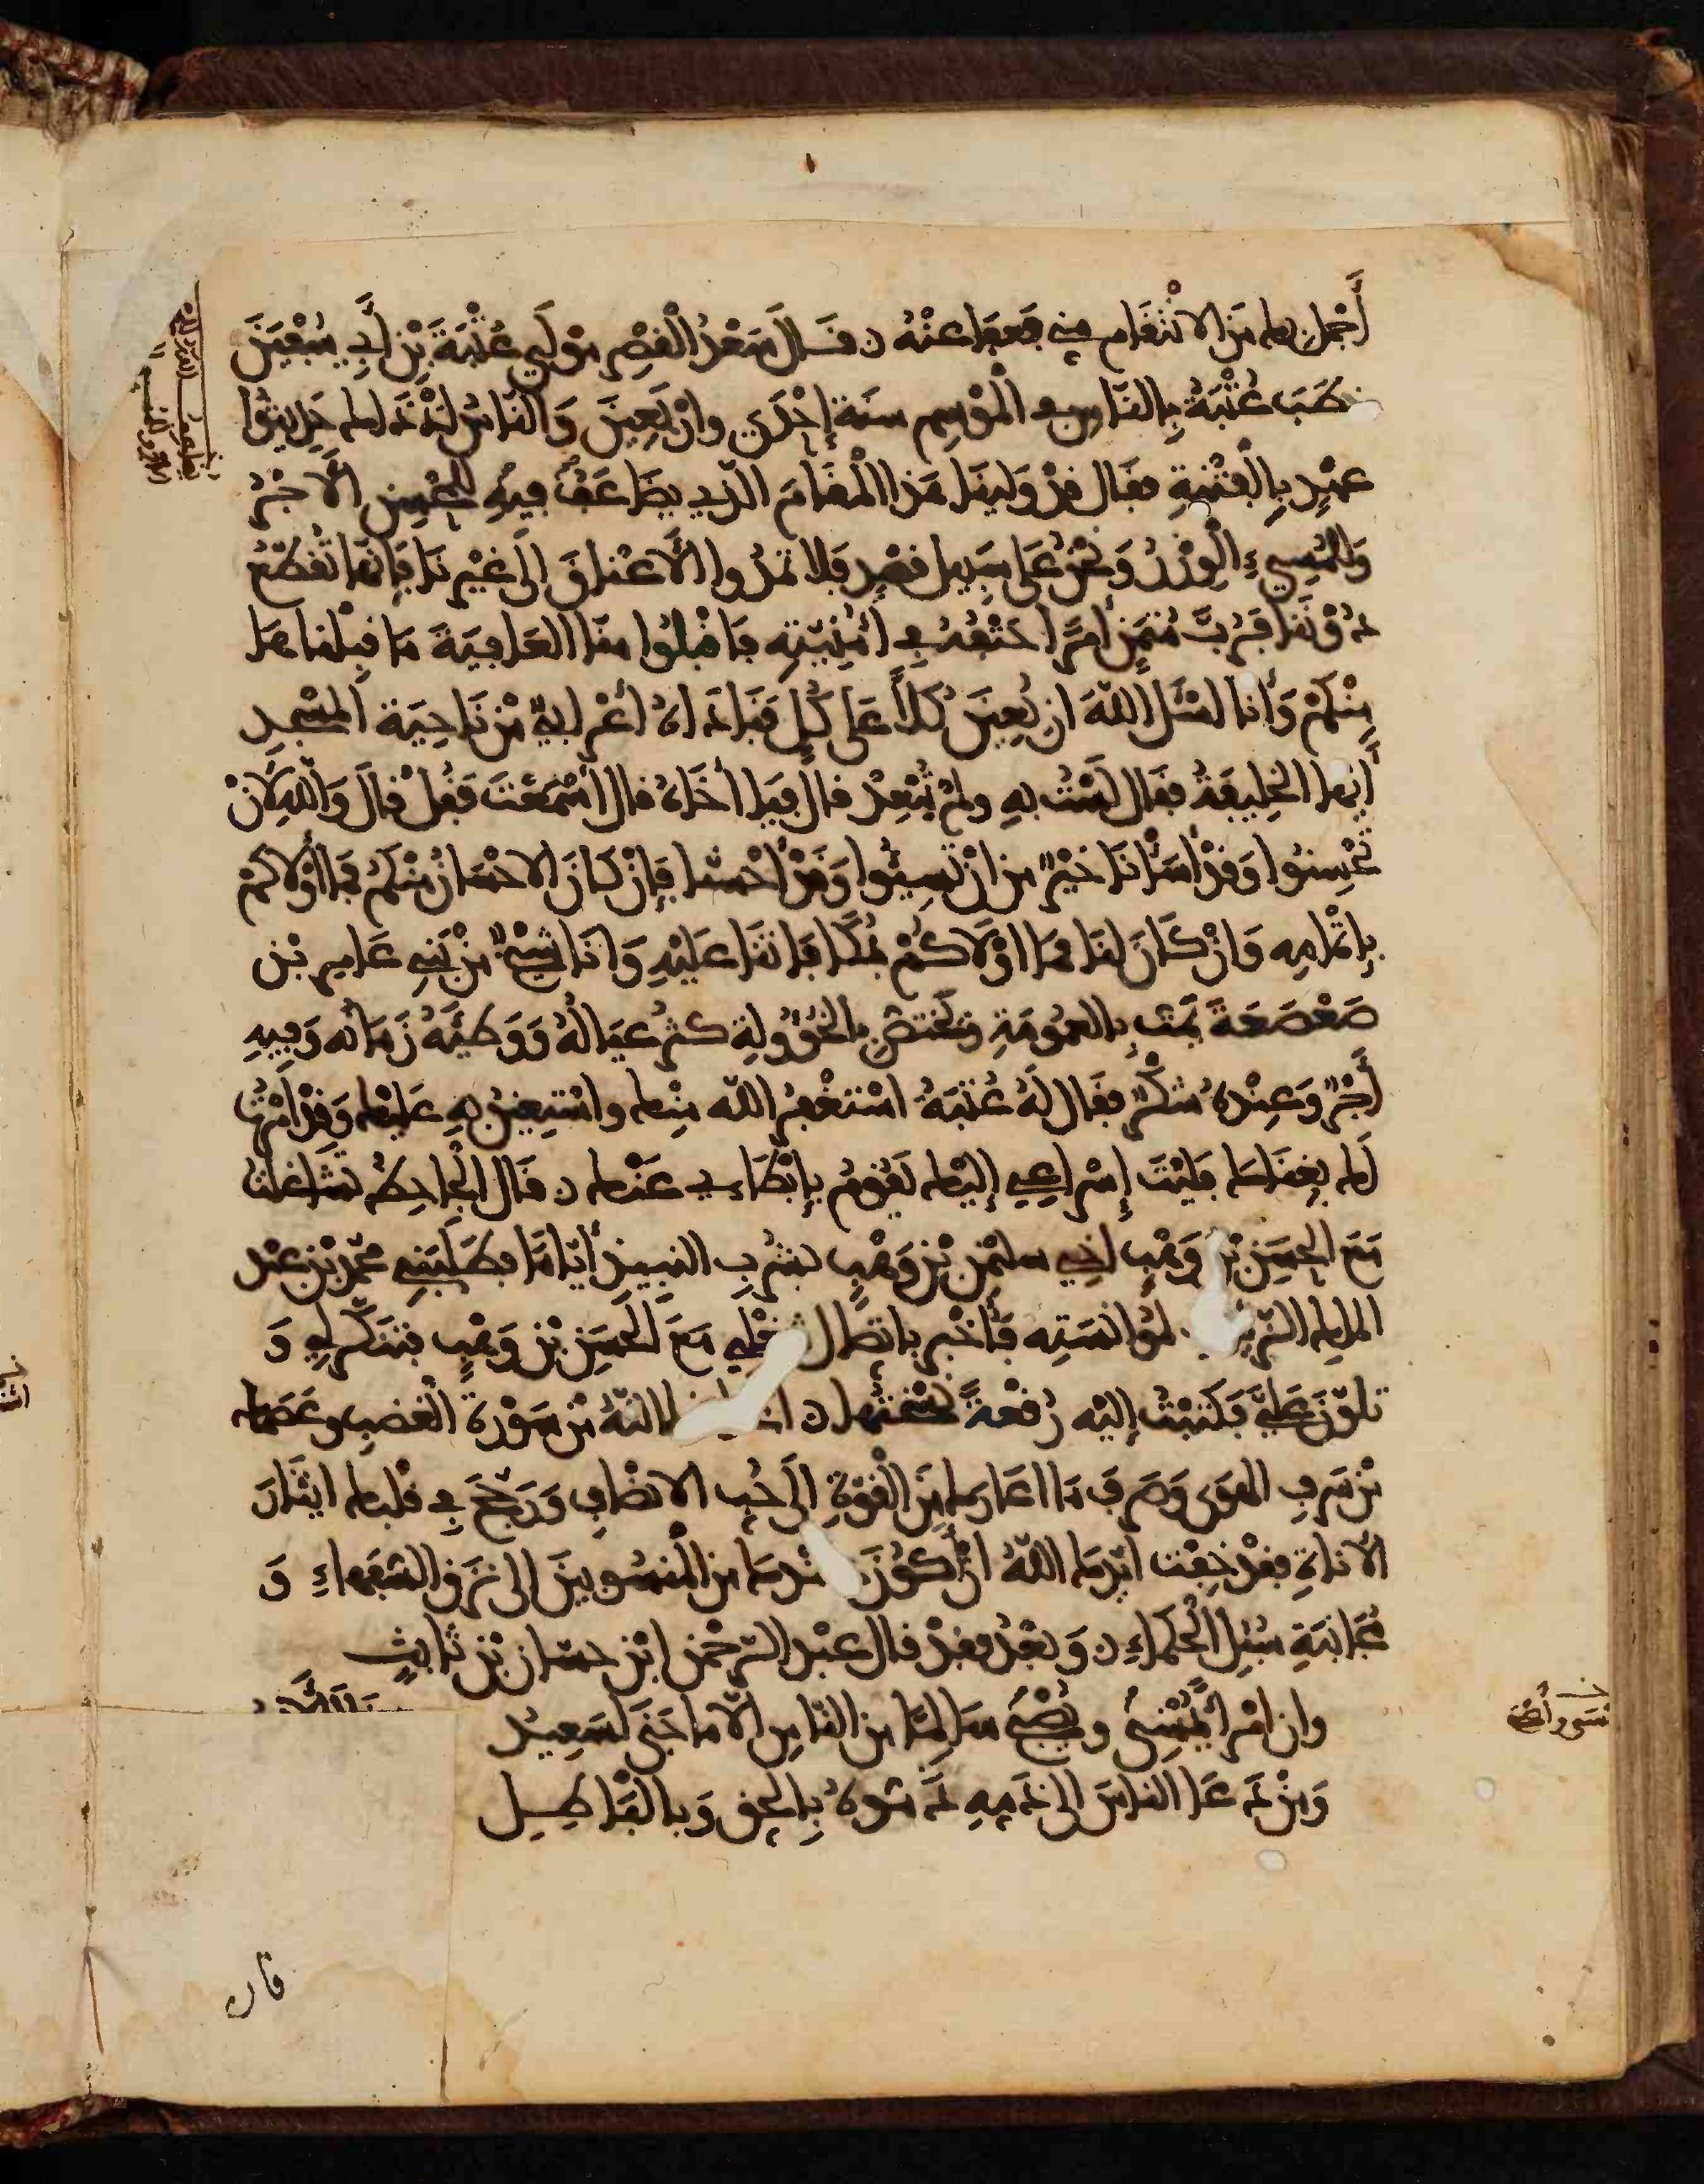 أَجْمَلُ بك من الانْتِقام مني فَعفا عنْهُ ٥ قَـال سَعْدُ الْقَصِر مَوْلَى عُتْبَةَ بْنِ أَبِي سُفْيَنَ
خطَبَ عُتْبَةُ بِالنَّاسِ في الْمَوْسِمِ سنةَ إِحْدَى وارْبَعِينَ وَالنَّاسُ إذْ ذَاك حَدِيثُوا
عَهْدٍ بِالْفِتْنَةِ فقال قدْ وَلِينَا هَذا الْمَقَامَ الّذِي يضَاعَفُ فِيهِ لِلمُحْسِنِ الْأَجْرُ
وَلِلْمُسِيءِ الْوِزْرُ وَنحْنُ عَلَى سَبِيلِ قصْدٍ فَلا تمُدُّوا الْأَعْنَاقَ إلَى غيْرِنَا فَإنّها تُقَطّعُ
دُونَنَا فَرُبَّ مُتَمَنٍّ أمرًا حَتْفُهُ في أُمْنِيّتِهِ فَاقْبَلُوا منّا العَافِيَةَ مَا قَبِلْناهَا
مِنْكُمْ وَأَنا أسْئَلُ اللّهَ ان يُعِينَ كُلاًّ عَلى كُلٍّ فَنَادَاهُ أعْرَابِيٌّ مِنْ نَاحِيَةِ الْمَسْجِدِ
أَيّها الخلِيفَةُ فقَال لَسْتُ بهِ ولمْ تُبْعِدْ قال فَيَا أخَاهُ قال أَسْمَعْتَ فَقُلْ قالَ وَاللّهِ لَأَنْ
تُحْسِنُوا وَقدْ أَسَأْنَا خَيْرٌ من انْ تُسِيئُوا وَقدْ أحْسَنّا فَإنْ كانَ الاحْسَانُ مِنْكُمْ فَمَا أوْلاكُمْ
بِإتْمَامِهِ وَإنْ كَانَ لنَا فَمَا اوْلَاكُمْ بمُكَافَاتنَا عَليْهِ وَانَا شيْخٌ مِنْ بَنِي عَامِرِ بْنِ
صَعْصَعَةَ يَمُتُّ بِالعُمُومَةِ وَيَخْتَصُّ بِالخُؤُولَةِ كَثُرَ عِيَالُهُ وَوَطِئَهُ زَمَانُه وَفِيهِ
أَجْرٌ وَعِنْدَهُ شكْرٌ فقال لَهُ عُتْبَةُ اسْتَغْفِرُ اللّه مِنْك واسْتعِينُ بهِ عَلَيْك وَقدْ امَرْتُ
لَك بِغِنَاك فَلَيْتَ إسْرَاعِي إليْك يَقُومُ بِإبْطَاءِي عَنْك ٥ قال الْجَاحِظُ تشَاغَلْتُ
مَعَ الحسَنِ بْنِ وَهْبٍ اخِي سلَيْمَنَ بْنِ وَهْبٍ بِشُرْبِ النّبِيذِ أيَّامًا فطَلَبَنِي محَمّدُ بْنُ عبْدِ
الملِك الزّيّاتُ لمُؤَانَسَتِه فَأُخْبِرَ باتّصَالِ شغْلِي مَعَ الحَسَنِ بْنِ وَهْبٍ فتَنَكَّرَ لِي وَ
تَلَوّنَ عَلَيَّ فَكَتَبْتُ إلَيْهِ رُقْعَةً نُسْخَتُهَا ٥ اعَاذَكَ اللّهُ مِنْ سَوْرةِ الْغَضَبِ وعَصَمك
مِنْ سَرَفِ الهَوَى وَصَرفَ مَا اعَارَك مِنَ الْقُوّةِ إلَى حُبِّ الانْصَافِ وَرَجَّحَ في قَلْبِك ايثَارَ
الْأَنَاةِ فقدْ خِفْتُ أيّدَك اللّهُ انْ أكُونَ عِنْدَك من الْمَنْسُوبِينَ إلَى نَزَقِ السّفَهَاءِ وَ
مُجَانَبَةِ سُبُلِ الْحُكَمَاءِ ٥ وَبَعْدُ فقدْ قال عبْدُ الرّحْمَنِ ابْنُ حسّانَ بْنِ ثَابِتٍ
وإن امْرأً يُمْسِي ويُصْبِحُ سَالِمًا من النّاسِ إلّا ما جَنَى لسَعِيدُ
وَمَنْ دَعَا النَّاسَ إلى ذَمِّهِ ذَمُّوهُ بِالحَقِّ وَبِالبَاطِـلِ
قال